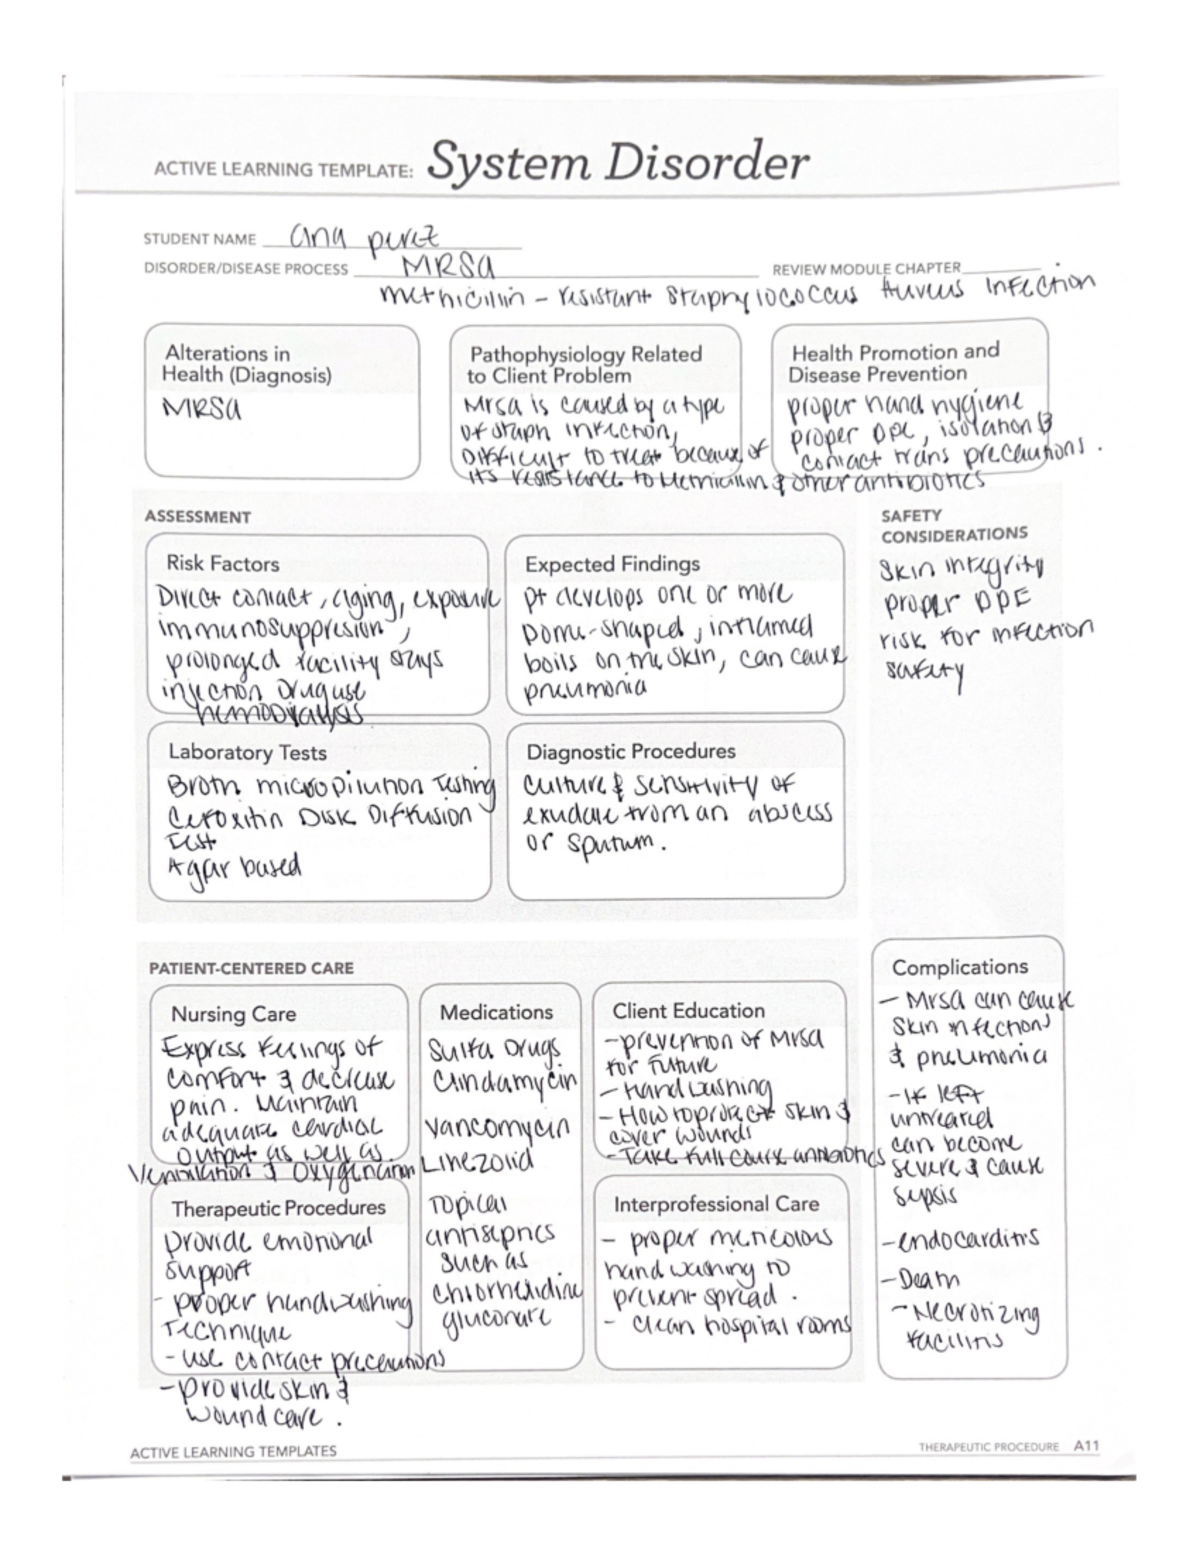 ACTIVE LEARNING TEMPLATE: System Disorder
STUDENT NAME ana perez
DISORDER/DISEASE PROCESS MRSA
REVIEW MODULE CHAPTER
methicillin - resistant Staphylococcus Aureus Infection
Alterations in
Health (Diagnosis)
MRSA
Pathophysiology Related
to Client Problem
Mrsa is caused by a type
of staph infection,
Difficult to treat because of
its resistance to Methicillin & other antibiotics
Health Promotion and
Disease Prevention
proper hand hygiene
proper PPE, isolation &
contact trans precautions.
ASSESSMENT
Risk Factors
Direct contact, aging, exposure
immunosuppresion,
prolonged facility stays
injection Drug use
hemodialysis
Expected Findings
pt develops one or more
Dome-shaped, inflamed
boils on the skin, can cause
pneumonia
SAFETY
CONSIDERATIONS
Skin integrity
proper PPE
risk for infection
safety
Laboratory Tests
Broth microdilution Testing
Cefoxitin Disk Diffusion
Test
Agar based
Diagnostic Procedures
Culture & sensitivity of
exudate from an abscess
or sputum.
PATIENT-CENTERED CARE
Nursing Care
Express feelings of
comfort & decrease
pain. Maintain
adequate cardiac
output as well as
Ventilation & Oxygenation
Medications
Sulfa Drugs
Clindamycin
Vancomycin
Linezolid
Topical
antiseptics
such as
chlorhexidine
gluconate
Client Education
- prevention of Mrsa
for future
- Hand washing
- How to protect skin &
cover wounds
- Take full course antibiotics
Complications
- Mrsa can cause
skin infections
& pneumonia
- If left
untreated
can become
severe & cause
sepsis
- endocarditis
- Death
- Necrotizing
faciitis
Therapeutic Procedures
provide emotional
support
- proper handwashing
Technique
- use contact precautions
- provide skin &
wound care.
Interprofessional Care
- proper meticolous
hand washing to
prevent spread.
- clean hospital rooms
ACTIVE LEARNING TEMPLATES
THERAPEUTIC PROCEDURE A11